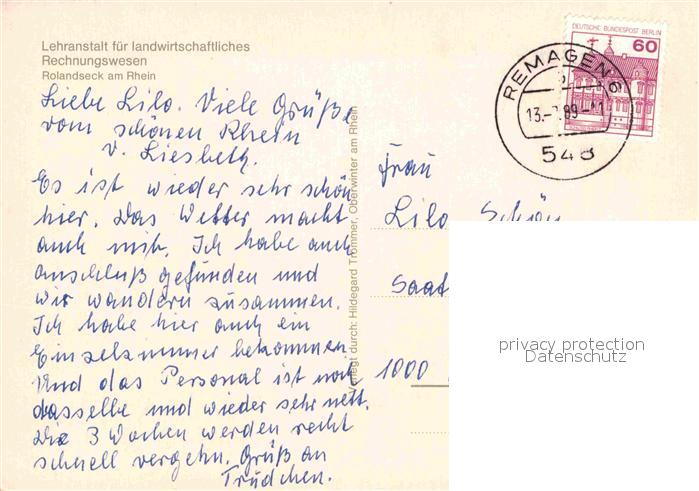 Lehranstalt für landwirtschaftliches
Rechnungswesen
Rolandseck am Rhein
Liebe Lilo. Viele Grüße
vom schönen Rhein
v. Liesbeth.
Es ist wieder sehr schön
hier. Das Wetter macht
auch mit. Ich habe auch
anschluß gefunden und
wir wandern zusammen.
Ich habe hier auch ein
Einzelzimmer bekommen
Und das Personal ist noch
dasselbe und wieder sehr nett.
Die 3 Wochen werden recht
schnell vergehn. Grüß an
Trudchen.
Verlegt durch: Hildegard Trommer, Oberwinter am Rhein
DEUTSCHE BUNDESPOST BERLIN
60
REMAGEN 6
13.- .89-11
548
Frau
Lilo Schön
Saat
1000
privacy protection
Datenschutz